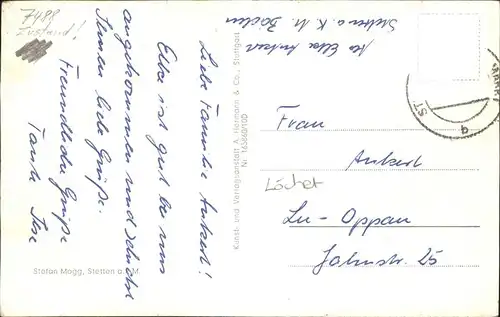 7488
Zustand!
Liebe Familie Ankert!
Elke ist gut bei uns
angekommen und schickt
Ihnen liebe Grüße.
Freundliche Grüße
Tante
Stefan Magg, Stetten a. k. M.
Kunst- und Verlagsanstalt A. Hermann & Co., Stuttgart
Nr. 163660/100
Abs Elke Ankert
Stetten a. K. M. Baden
ST
Frau
Ankert
Löchet
Lu-Oppau
Jahnstr. 25